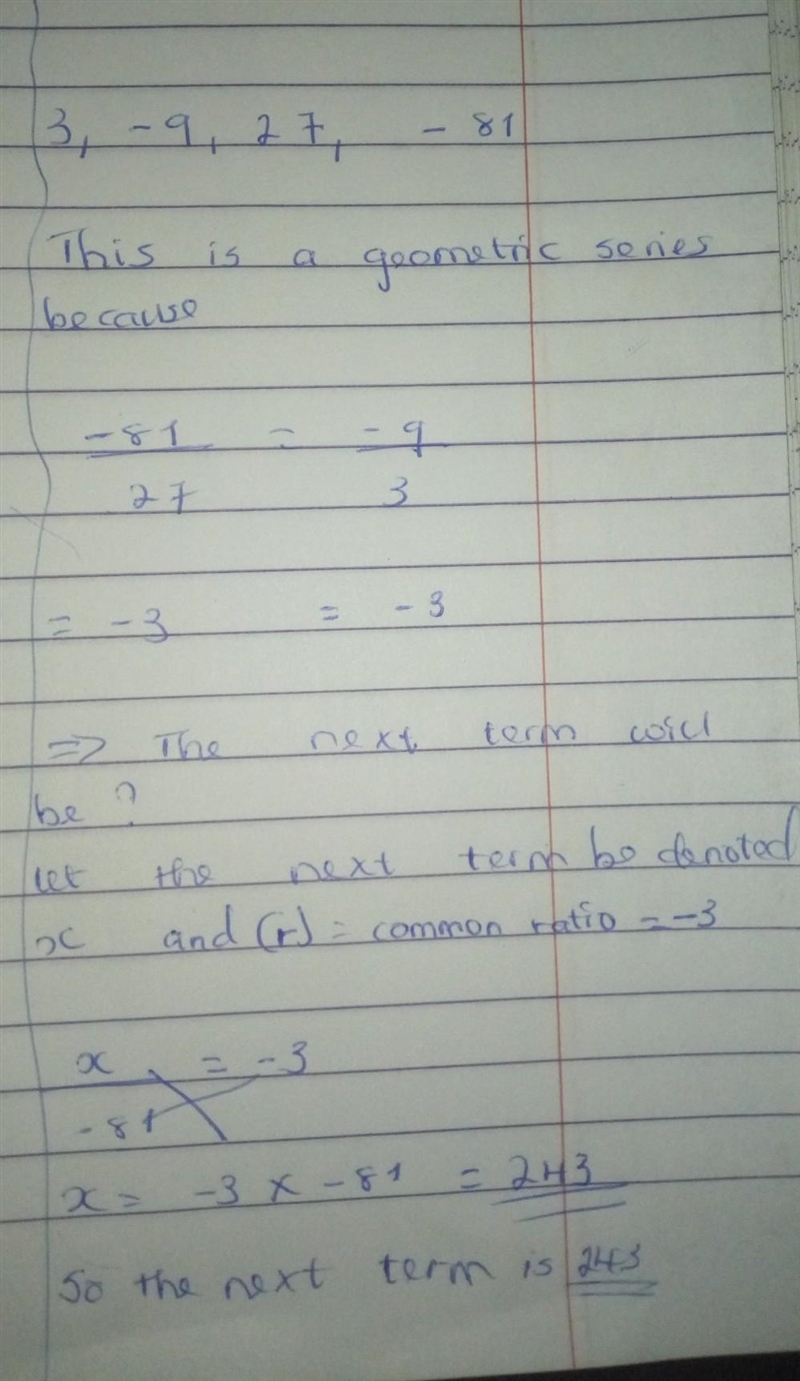 3, -9, 27, - 81
This is a geometric series
because
-81 = -9
27 3
= -3 = -3
=> The next term will
be ?
Let the next term be denoted
x and (r) = common ratio = -3
x = -3
-81
x = -3 x -81 = 243
So the next term is 243